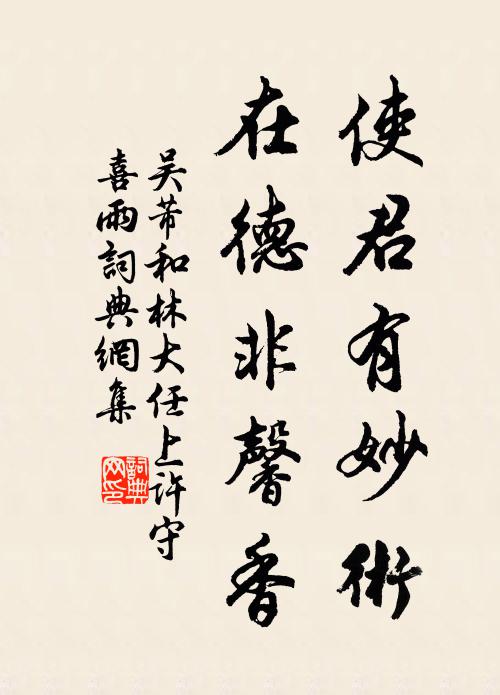 使君有妙術
在德非馨香
吴芾和林大任上许守
喜雨詞典網集
詞典
网印